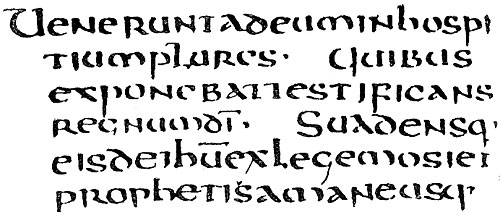 Ueneruntadeuminhospi
tiumplures· Quibus
exponebattestificans
regnumdī· Suadensq·
eisdeihūexlegemosiet
prophetisamaneusq·